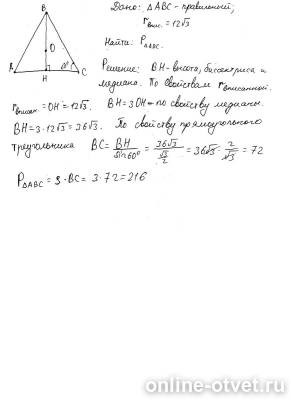 B
O
A
H
60°
C
Дано: △ABC - правильный;
r впис. = 12√3
Найти: P△ABC.
Решение: BH - высота, биссектриса и
медиана. По свойствам r вписанной.
r вписан. = OH = 12√3. BH = 3OH - по свойству медианы.
BH = 3·12√3 = 36√3. По свойству прямоугольного
треугольника BC = BH/sin60° = 36√3/(√3/2) = 36√3·2/√3 = 72
P△ABC = 3·BC = 3·72 = 216
online-otvet.ru